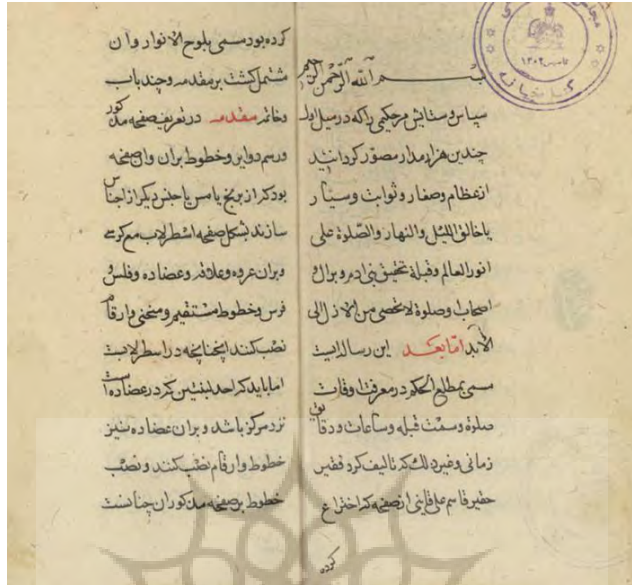 بسم الله الرحمن الرحیم
سپاس و ستایش مر حکیمی را که در میل اول
چندین هزار مدار مصور کردانید
از عظام و صغار و ثوابت و سیار
یا خالق اللیل والنهار والصلوة علی
انور العالم و قبلة تحقیق بنی ادم و بر ال و
اصحاب او صلوة لا تحصی من الازل الی
الابد اما بعد این رساله ایست
مسمی بمطلع الحکم در معرفت اوقات
صلوة و سمت قبله و ساعات و دقایق
زمانی و غیر ذلک که تالیف کرد فقیر
حقیر قاسم علی قاینی از صفحه که اختراع
کرده
کرده بود مسمی بلوح الانوار و ان
مشتمل کشت بر مقدمه و چند باب
و خاتمه مقدمه در تعریف صفحه مذکور
و رسم دوایر و خطوط بران و ان صفحه
بود که از برنج یا مس یا جنس دیکر از اجناس
سازند بشکل صفحه اسطرلاب مع کرسی
و بران عروه و علاقه و عضاده و فلس و
فرس و خطوط مستقیم و منحنی و ارقام
نصب کنند انچنانچه در اسطرلابست
اما باید که احد لبنتین که در عضاده است
نزد مرکز باشد و بران عضاده نیز
خطوط و ارقام نصب کنند و نصب
خطوط بر صفحه مذکور ان چنانست
کتابخانه مجلس